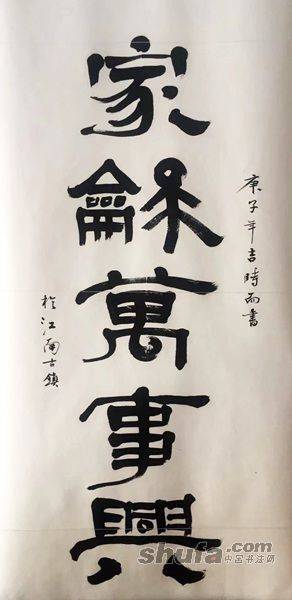 庚子年吉時而書
家龢萬事興
於江南古鎮
shufa.com
中国书法网